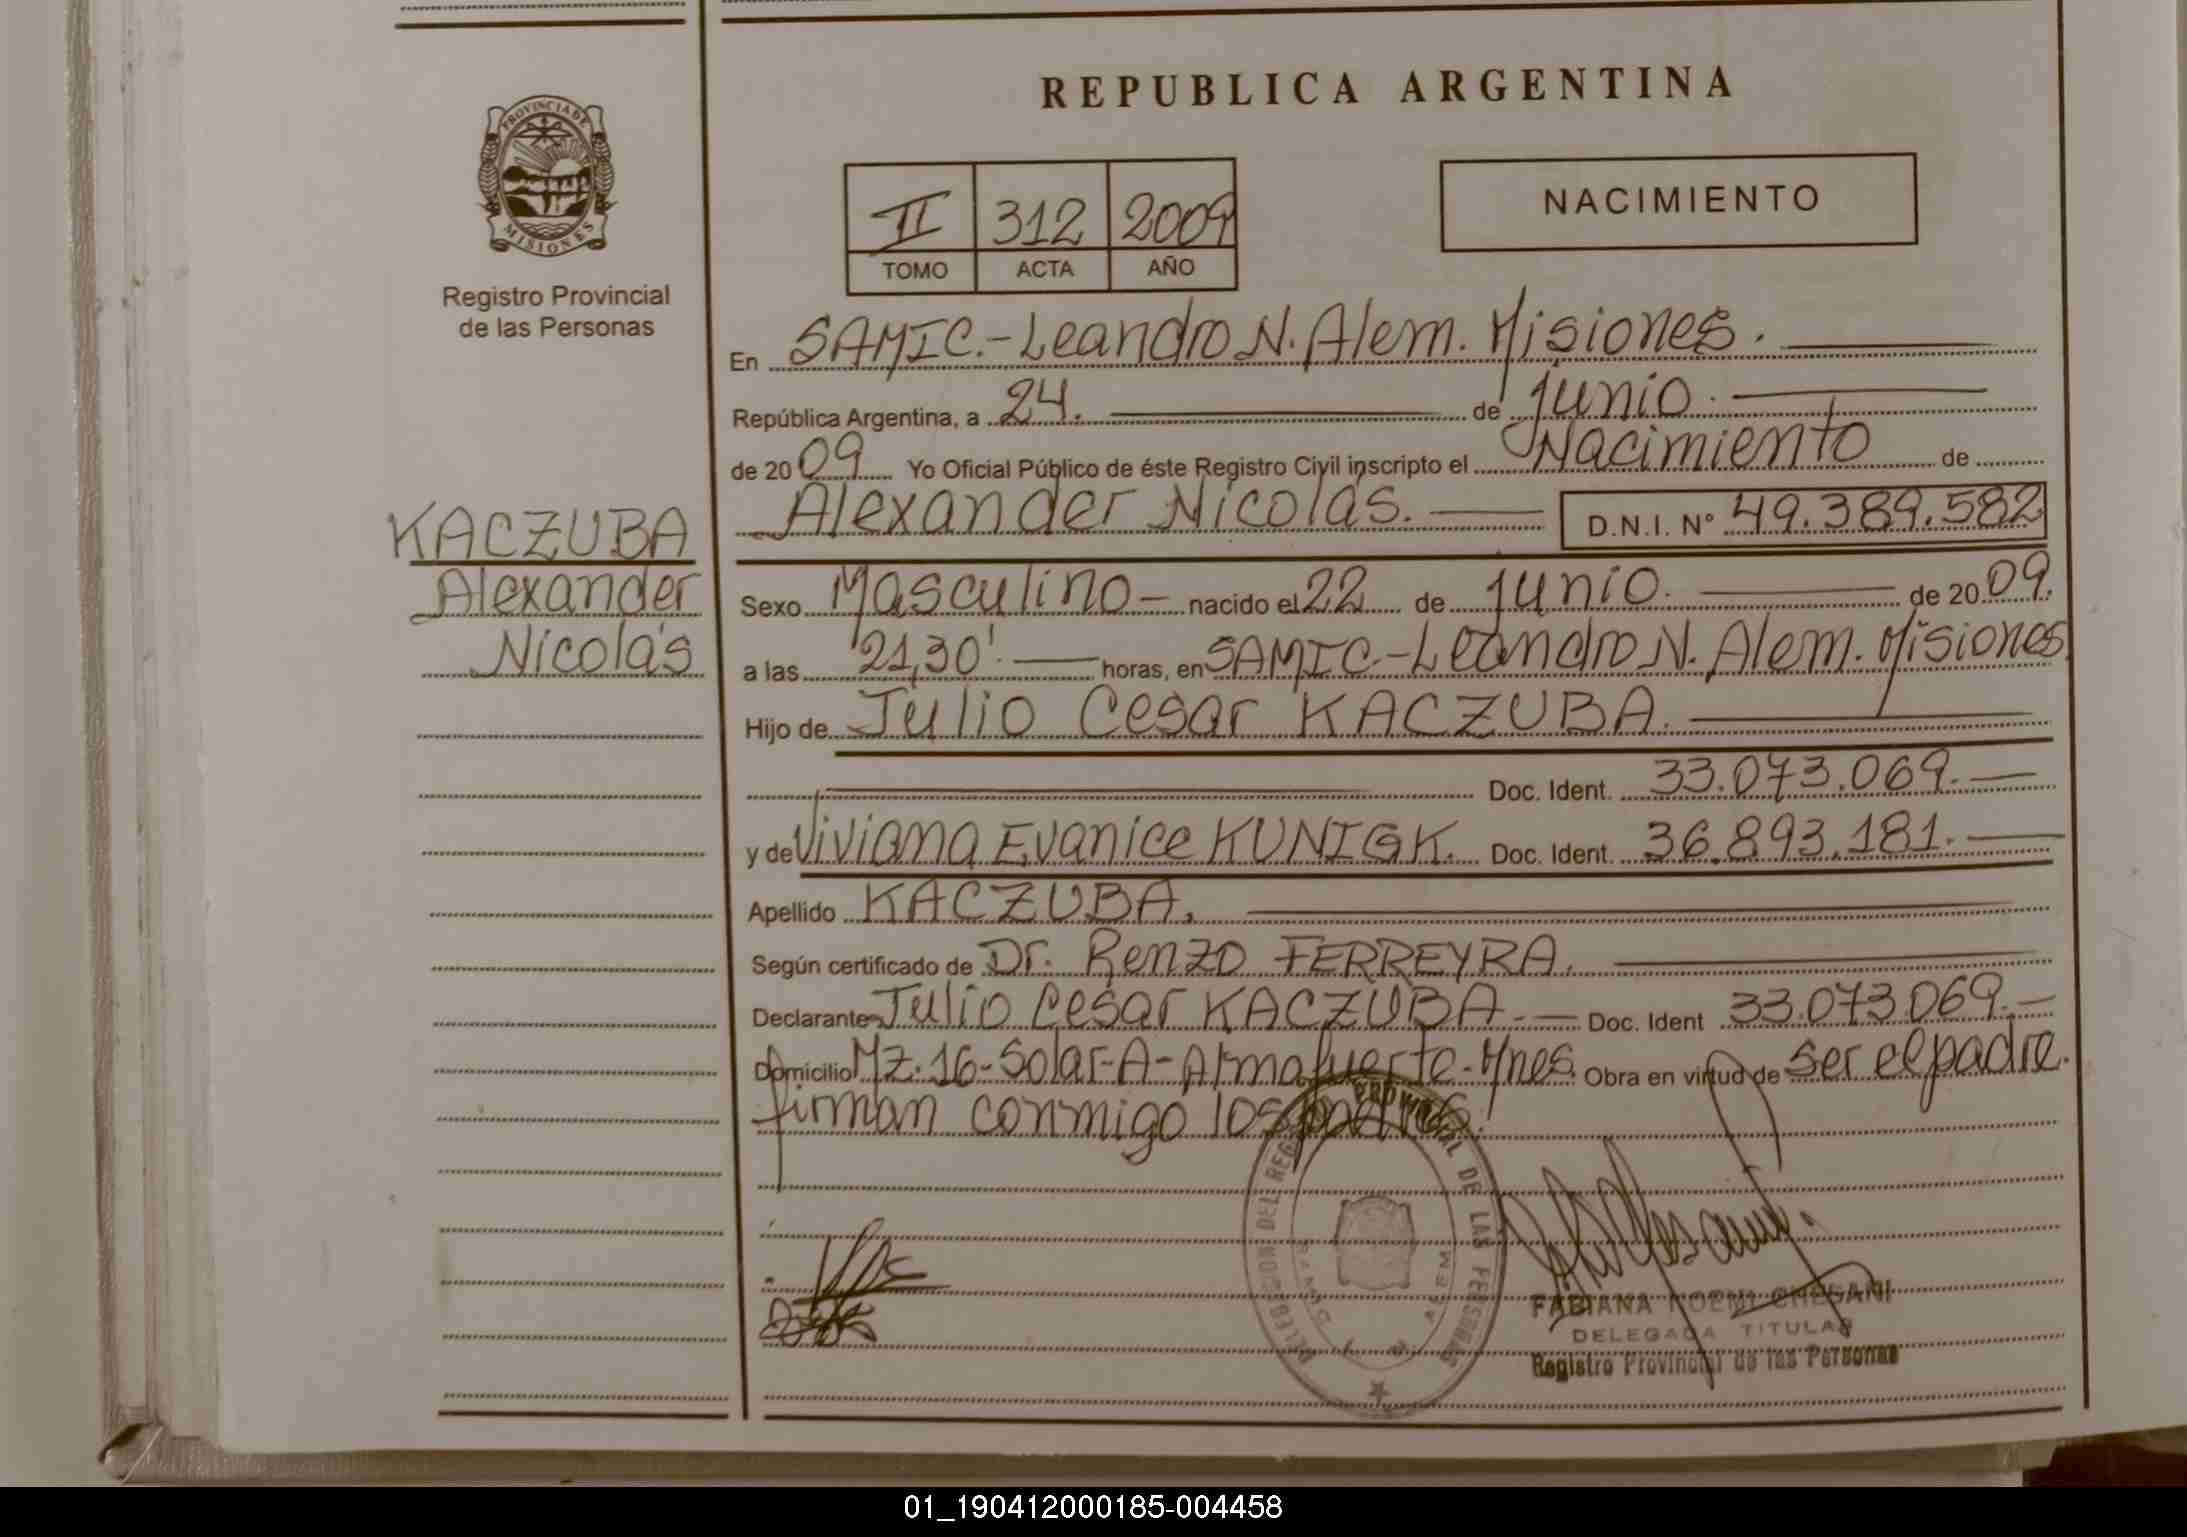 REPUBLICA ARGENTINA
PROVINCIA DE
MISIONES
Registro Provincial
de las Personas
II 312 2009
TOMO ACTA AÑO
NACIMIENTO
En SAMIC.-Leandro N. Alem. Misiones.
República Argentina, a 24. de junio.
de 2009 Yo Oficial Público de éste Registro Civil inscripto el Nacimiento de
Alexander Nicolás. D.N.I. N° 49.389.582
KACZUBA
Alexander
Nicolás
Sexo Masculino- nacido el 22 de junio. de 2009.
a las 21,30'. horas, en SAMIC.-Leandro N. Alem. Misiones
Hijo de Julio Cesar KACZUBA.
Doc. Ident. 33.073.069.-
y de Viviana Evanice KUNIGK. Doc. Ident. 36.893.181.-
Apellido KACZUBA.
Según certificado de Dr. Renzo FERREYRA.
Declarante Julio Cesar KACZUBA.- Doc. Ident 33.073.069.-
Domicilio Mz.16-Solar-A-Almafuerte-Mnes. Obra en virtud de ser el padre.
firman conmigo los padres.
DELEGACION DEL REGISTRO PROVINCIAL DE LAS PERSONAS
ALEM
FABIANA NOEMI
DELEGADA TITULAR
Registro Provincial de las Personas
01_190412000185-004458